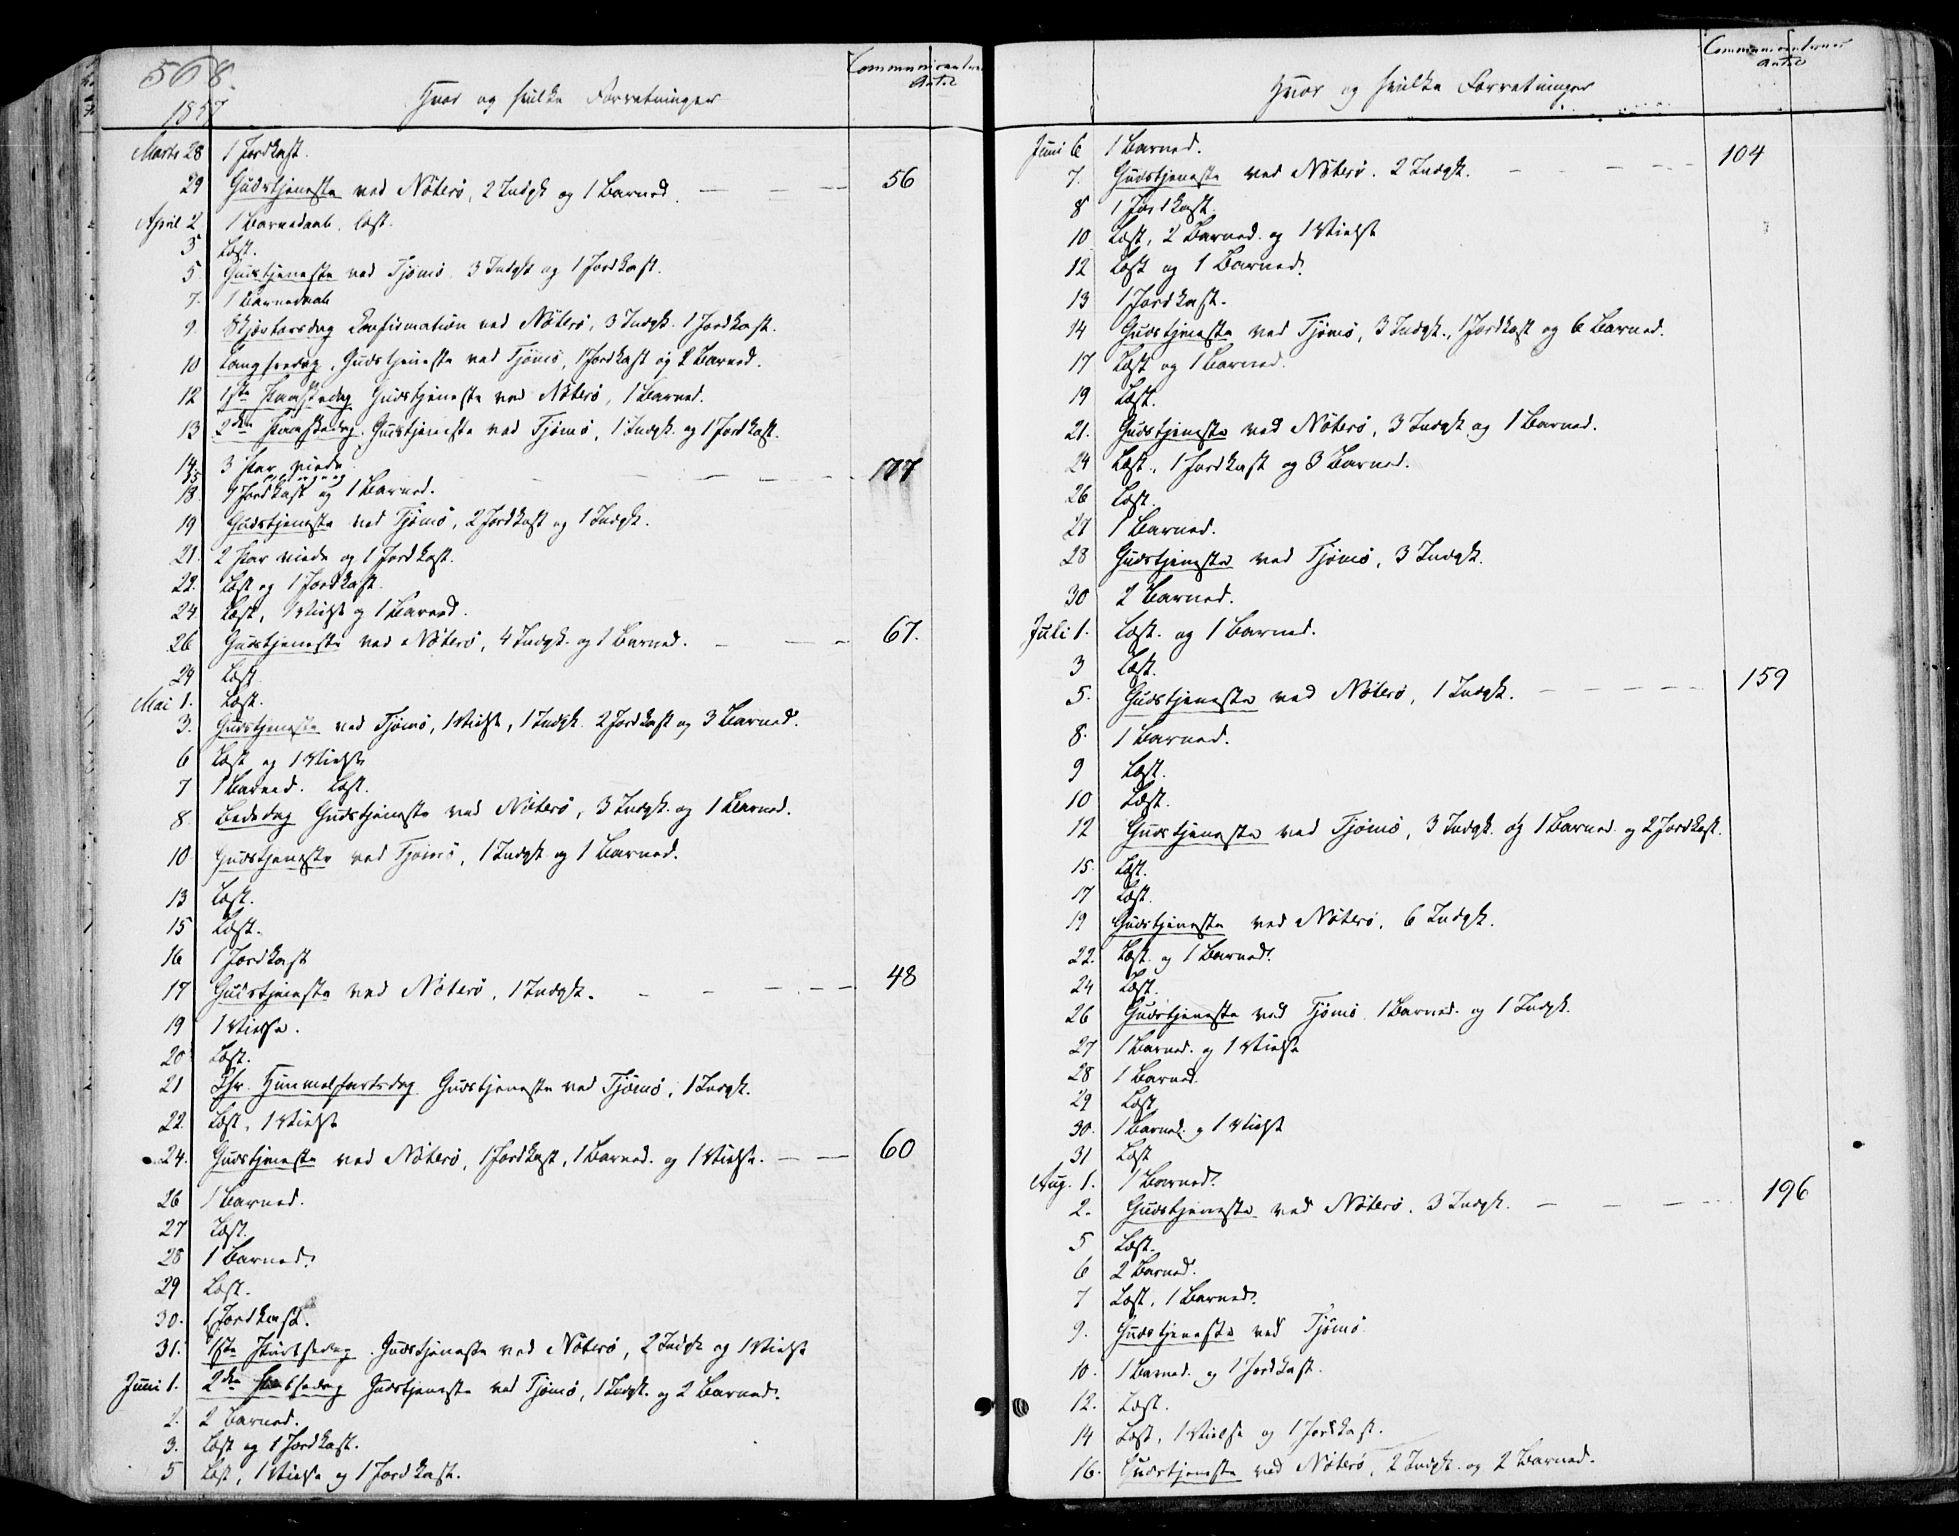 568.
1857
Hvor og hvilke Forretninger
Communicanternes Antal
Marts 28 1 Jordkast.
29 Gudstjeneste ved Nøterø, 2 Indgk og 1 Barned. 56
April 2 1 Barnedaab. Læst.
3 Læst.
5 Gudstjeneste ved Tjømø 3 Indgk og 1 Jordkast.
7. 1 Barnedaab
9. Skjærtorsdag Confirmation ved Nøterø, 3 Indgk. 1 Jordkast.
10 Langfredag. Gudstjeneste ved Tjømø, 1 Jordkast og 2 Barned.
12 1ste Paaskedag Gudstjeneste ved Nøterø, 1 Barned.
13 2den Paaskedag. Gudstjeneste ved Tjømø, 1 Indgk. og 1 Jordkast.
14. 3 Par viede.
15 177
18 1 Jordkast og 1 Barned.
19 Gudstjeneste ved Tjømø, 2 Jordkast og 1 Indgk.
21. 2 Par viede og 1 Jordkast.
22. Læst og 1 Jordkast.
24 Læst, 1 Vielse og 1 Barned.
26 Gudstjeneste ved Nøterø, 4 Indgk. og 1 Barned. 67.
29 Læst
Mai 1. Læst.
3. Gudstjeneste ved Tjømø, 1 Vielse, 1 Indgk. 2 Jordkast og 3 Barned.
6 Læst og 1 Vielse
7 1 Barned. Læst.
8. Bededag Gudstjeneste ved Nøterø, 3 Indgk. og 1 Barned.
10. Gudstjeneste ved Tjømø, 1 Indgk og 1 Barned.
13 Læst.
15 Læst.
16 1 Jordkast
17 Gudstjeneste ved Nøterø, 1 Indgk. 48
19 1 Vielse.
20 Læst.
21 Chr. Himmelfartsdag Gudstjeneste ved Tjømø, 1 Indgk.
22. Læst, 1 Vielse
24. Gudstjeneste ved Nøterø, 1 Jordkast, 1 Barned. og 1 Vielse. 60
26 1 Barned.
27 Læst.
28 1 Barned.
29 Læst.
30. 1 Jordkast.
31. 1ste Pintsedag. Gudstjeneste ved Nøterø, 2 Indgk og 1 Vielse
Juni 1. 2den Pintsedag Gudstjeneste ved Tjømø, 1 Indgk. og 2 Barned.
2. 2 Barned.
3. Læst og 1 Jordkast.
5 Læst, 1 Vielse og 1 Jordkast.
Hvor og hvilke Forretninger
Communicanternes Antal
Juni 6 1 Barned.
7. Gudstjeneste ved Nøterø. 2 Indgk. 104
8 1 Jordkast.
10 Læst, 2 Barned. og 1 Vielse
12 Læst og 1 Barned.
13 1 Jordkast.
14 Gudstjeneste ved Tjømø, 3 Indgk., 1 Jordkast og 6 Barned.
17 Læst og 1 Barned.
19 Læst.
21. Gudstjeneste ved Nøterø, 3 Indgk og 1 Barned.
24 Læst, 1 Jordkast og 3 Barned.
26 Læst.
27 1 Barned.
28 Gudstjeneste ved Tjømø, 3 Indgk.
30 2 Barned.
Juli 1. Læst. og 1 Barned.
3 Læst.
5. Gudstjeneste ved Nøterø, 1 Indgk. 159
8. 1 Barned.
9 Læst.
10 Læst.
12 Gudstjeneste ved Tjømø, 3 Indgk. og 1 Barned. og 2 Jordkast.
15. Læst.
17 Læst.
19 Gudstjeneste ved Nøterø. 6 Indgk.
22. Læst. og 1 Barned.
24 Læst.
26 Gudstjeneste ved Tjømø 1 Barned. og 1 Indgk.
27 1 Barned. og 1 Vielse
28 1 Barned.
29 Læst
30. 1 Barned. og 1 Vielse
31 Læst
Aug. 1. 1 Barned.
2. Gudstjeneste ved Nøterø. 3 Indgk. 196
5 Læst.
6 2 Barned.
7 Læst, 1 Barned.
9. Gudstjeneste ved Tjømø
10. 1 Barned. og 1 Jordkast.
12. Læst.
14 Læst, 1 Vielse og 1 Jordkast.
16. Gudstjeneste ved Nøterø, 2 Indgk. og 2 Barned.